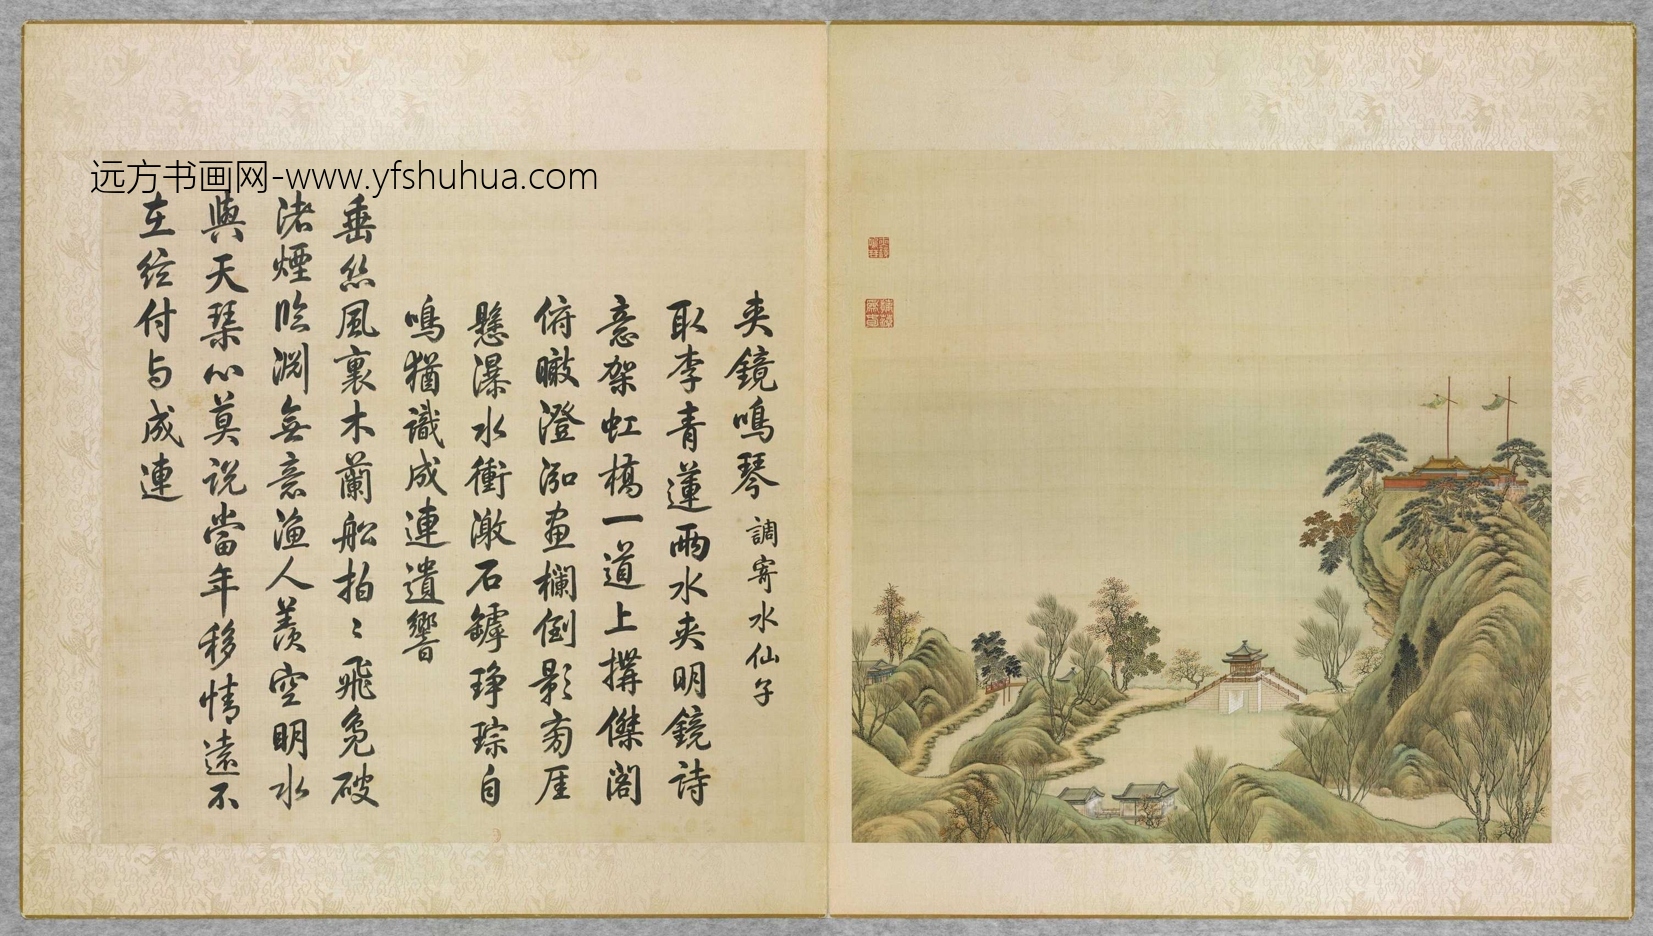 远方书画网-www.yfshuhua.com
夹鏡鳴琴 調寄水仙子
取李青蓮兩水夹明鏡詩
意架虹橋一道上搆傑閣
俯瞰澄泓畫欄倒影旁厓
懸瀑水衝激石罅琤琮自
鳴猶識成連遺響
垂絲風裏木蘭船拍〻飛鳧破
渚煙臨淵無意漁人羨空明水
與天琴心莫说當年移情遠不
在絃付与成連